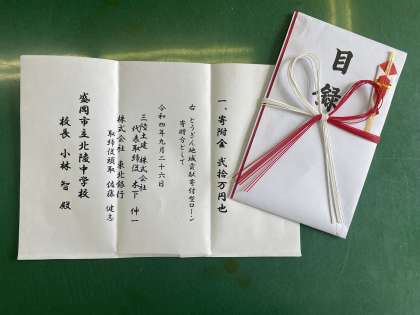 目録
一、寄附金 弐拾万円也
右 とうぎん地域貢献寄付型ローン
寄贈分として
令和四年九月二十六日
三陸土建 株式会社
代表取締役 木下 伸一
株式会社 東北銀行
取締役頭取 佐藤 健志
盛岡市立北陵中学校
校長 小林 智 殿